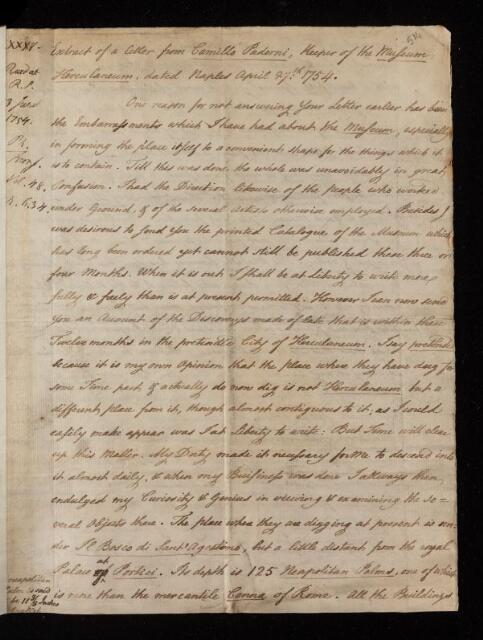 514
XXXV.
Extract of a letter from Camillo Paderni, Keeper of the Museum
Herculaneum, dated Naples April 27th. 1754.
Read at
R.S.
1754.
One reason for not answering Your Letter earlier has been
the Embarrassments which I have had about the Museum, especially
in forming the place itself to a convenient shape for the things which it
is to contain. Till this was done, the whole was unavoidably in great
Confusion. I had the Direction likewise of the people who worked
under Ground, & of the several Artists otherwise employed. Besides I
was desirous to send you the printed Catalogue of the Museum which
has long been ordered yet cannot still be published these three or
four Months. When it is out I shall be at liberty to write more
fully & freely than is at present permitted. However I can now send
You an Account of the Discoverys made of late that is within these
Twelve months in the pretended City of Herculaneum. I say pretended
because it is my own Opinion that the place where they have dug for
some Time past, & actually do now dig is not Herculaneum but a
different place from it, though almost contiguous to it, as I could
easily make appear was I at Liberty to write: But Time will clear
up this Matter. My Duty made it necessary for Me to descend into
it almost daily, & when my Business was done I always then
endulged my Curiosity & Genius in viewing & examining the se=
veral Objects there. The place where they are digging at present is un-
der Il Bosco di Sant' Agostino, but a little distant from the royal
Palace at Portici. Its depth is 125 Neapolitan Palms, one of which
is more than the mercantile Canna of Rome. All the Buildings
neapolitan
Palm is said